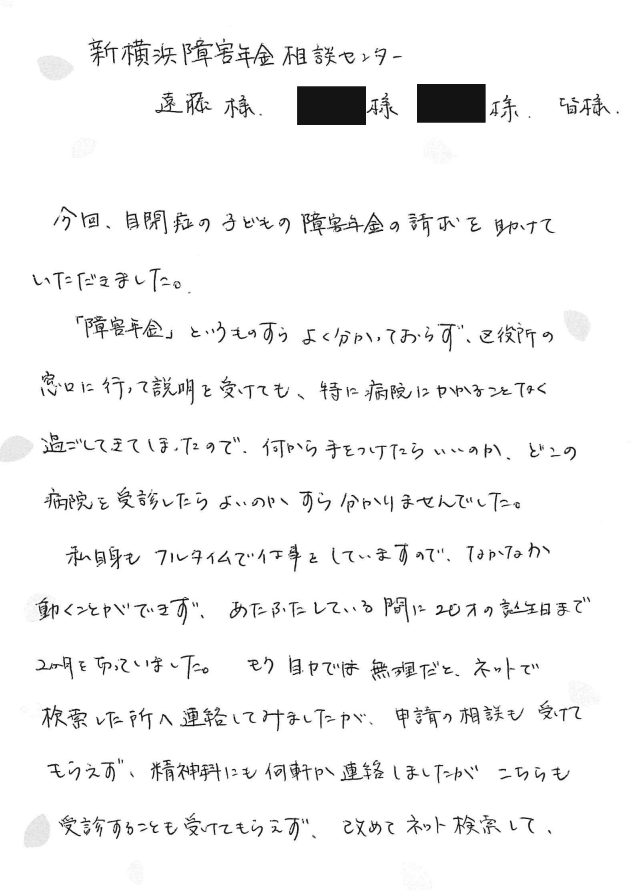 新横浜障害年金相談センター
遠藤様. 様 様. 皆様.
今回、自閉症の子どもの障害年金の請求を助けて
いただきました。
「障害年金」というものすらよく分かっておらず、区役所の
窓口に行って説明を受けても、特に病院にかかることなく
過ごしてきてしまったので、何から手をつけたらいいのか、どこの
病院を受診したらよいのかすら分かりませんでした。
私自身もフルタイムで仕事をしていますので、なかなか
動くことができず、あたふたしている間に20才の誕生日まで
2ヶ月を切っていました。もう自力では無理だと、ネットで
検索した所へ連絡してみましたが、申請の相談も受けて
もらえず、精神科にも何軒か連絡しましたがこちらも
受診することも受けてもらえず、改めてネット検索して、